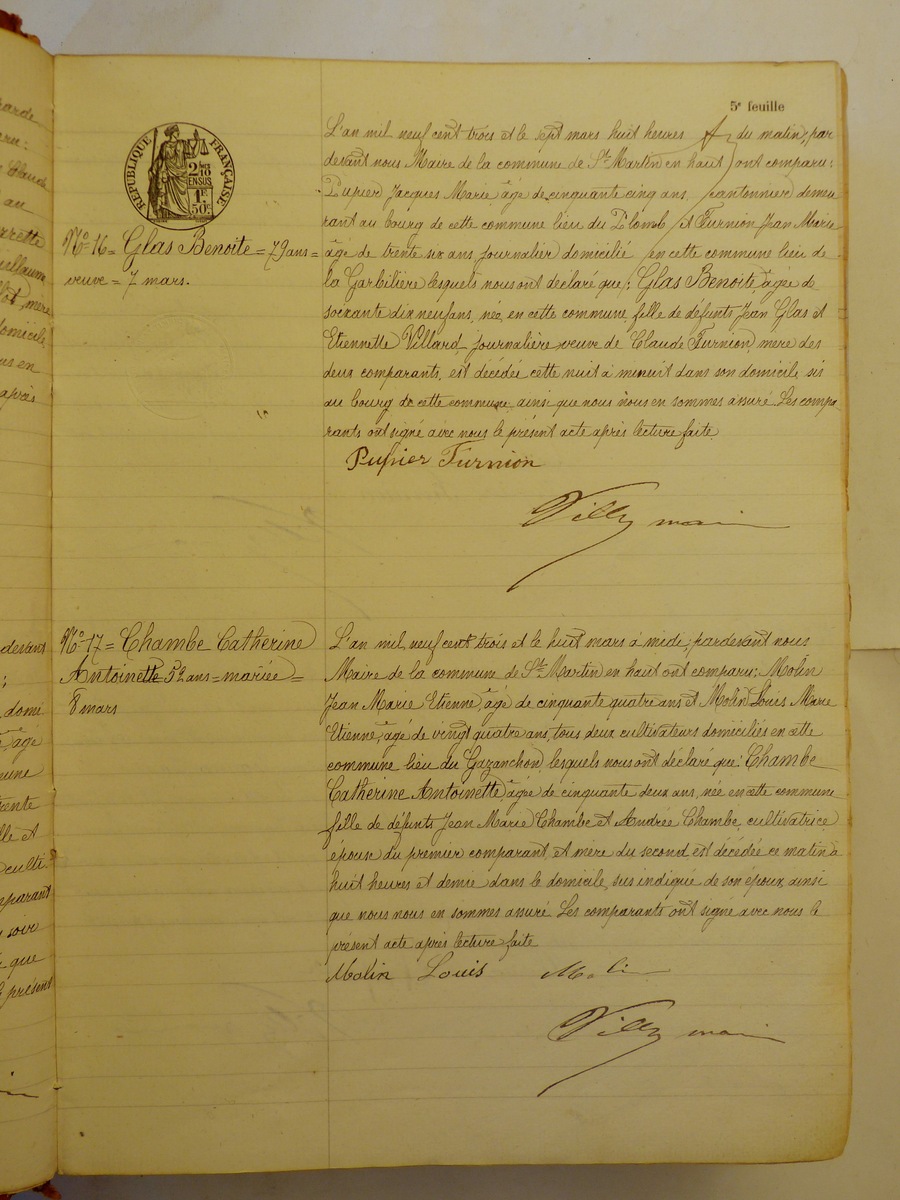 5e feuille
RÉPUBLIQUE FRANÇAISE
2/10
EN SUS
1F
50c
No 16 = Glas Benoite = 79 ans =
veuve = 7 mars.
L'an mil neuf cent trois et le sept mars huit heures du matin, par
devant nous Maire de la commune de St Martin en haut, ont comparu:
Pupier Jacques Marie âgé de cinquante cinq ans, cantonnier demeu
rant au bourg de cette commune lieu du Plomb, et Furnion Jean Marie
âgé de trente six ans journalier domicilié en cette commune lieu de
la Garbilière lesquels nous ont déclaré que: Glas Benoite, âgée de
soixante dix neuf ans, née en cette commune fille de défunts Jean Glas et
Etiennette Villard, journalière veuve de Claude Furnion, mère des
deux comparants, est décédée cette nuit à minuit dans son domicile sis
au bourg de cette commune ainsi que nous nous en sommes assuré. Les compa
rants ont signé avec nous le présent acte après lecture faite
Pupier Furnion
Villy maire
No 17 = Chambe Catherine
Antoinette 52 ans = mariée =
8 mars
L'an mil neuf cent trois et le huit mars à midi, pardevant nous
Maire de la commune de St Martin en haut ont comparu: Molin
Jean Marie Etienne, âgé de cinquante quatre ans et Molin Louis Marie
Etienne, âgé de vingt quatre ans, tous deux cultivateurs domiciliés en cette
commune lieu du Gazanchon, lesquels nous ont déclaré que: Chambe
Catherine Antoinette, âgée de cinquante deux ans, née en cette commune
fille de défunts Jean Marie Chambe et Andrée Chambe, cultivatrice
épouse du premier comparant et mère du second est décédée ce matin à
huit heures et demie dans le domicile, sus indiqué de son époux ainsi
que nous nous en sommes assuré. Les comparants ont signé avec nous le
présent acte après lecture faite
Molin Louis Molin
Villy maire